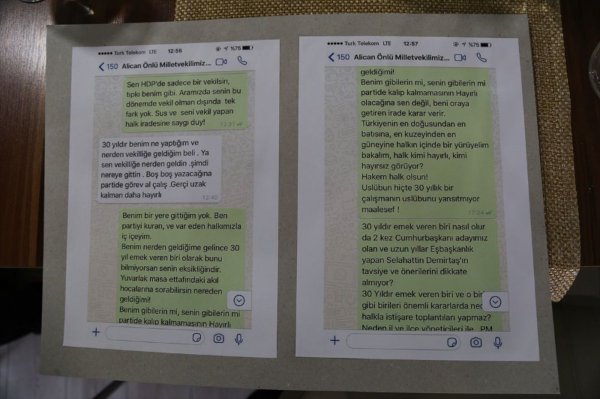 Turk Telekom LTE 12:56 %75
150 Alican Önlü Milletvekilimiz...
Sen HDP'de sadece bir vekilsin,
tıpkı benim gibi. Aramızda senin bu
dönemde vekil olman dışında tek
fark yok. Sus ve seni vekil yapan
halk iradesine saygı duy!
12:31
30 yıldır benim ne yaptığım ve
nerden vekilliğe geldiğim beli . Ya
sen vekilliğe nerden geldin .şimdi
nereye gittin . Boş boş yazacağına
partide görev al çalş .Gerçi uzak
kalman daha hayırlı
12:40
Benim bir yere gittiğim yok. Ben
partiyi kuran, ve var eden halkımızla
iç içeyim.
Benim nerden geldiğime gelince 30
yıl emek veren biri olarak bunu
bilmiyorsan senin eksikliğindir.
Yuvarlak masa ettafındaki akıl
hocalarına sorabilirsin nereden
geldiğimi!
Benim gibilerin mi, senin gibilerin mi
partide kalıp kalmamasının Hayırlı
Turk Telekom LTE 12:57 %75
150 Alican Önlü Milletvekilimiz...
geldiğimi!
Benim gibilerin mi, senin gibilerin mi
partide kalıp kalmamasının Hayırlı
olacağına sen değil, beni oraya
getiren irade karar verir.
Türkiyenin en doğusundan en
batısına, en kuzeyinden en
güneyine halkın içinde bir yürüyelim
bakalım, halk kimi hayırlı, kimi
hayırsız görüyor?
Hakem halk olsun!
Uslübun hiçte 30 yıllık bir
çalışmanın uslübunu yansıtmıyor
maalesef !
12:24
30 yıldır emek veren biri nasıl olur
da 2 kez Cumhurbaşkanı adayımız
olan ve uzun yıllar Eşbaşkanlık
yapan Selahattin Demirtaş'ın
tavsiye ve önerilerini dikkate
almıyor?
30 Yıldır emek veren biri ve o bir
gibi birileri önemli kararlarda ne
halkla istişare toplantıları yapmaz?
Neden il ve ilçe yöneticileri ile, PM